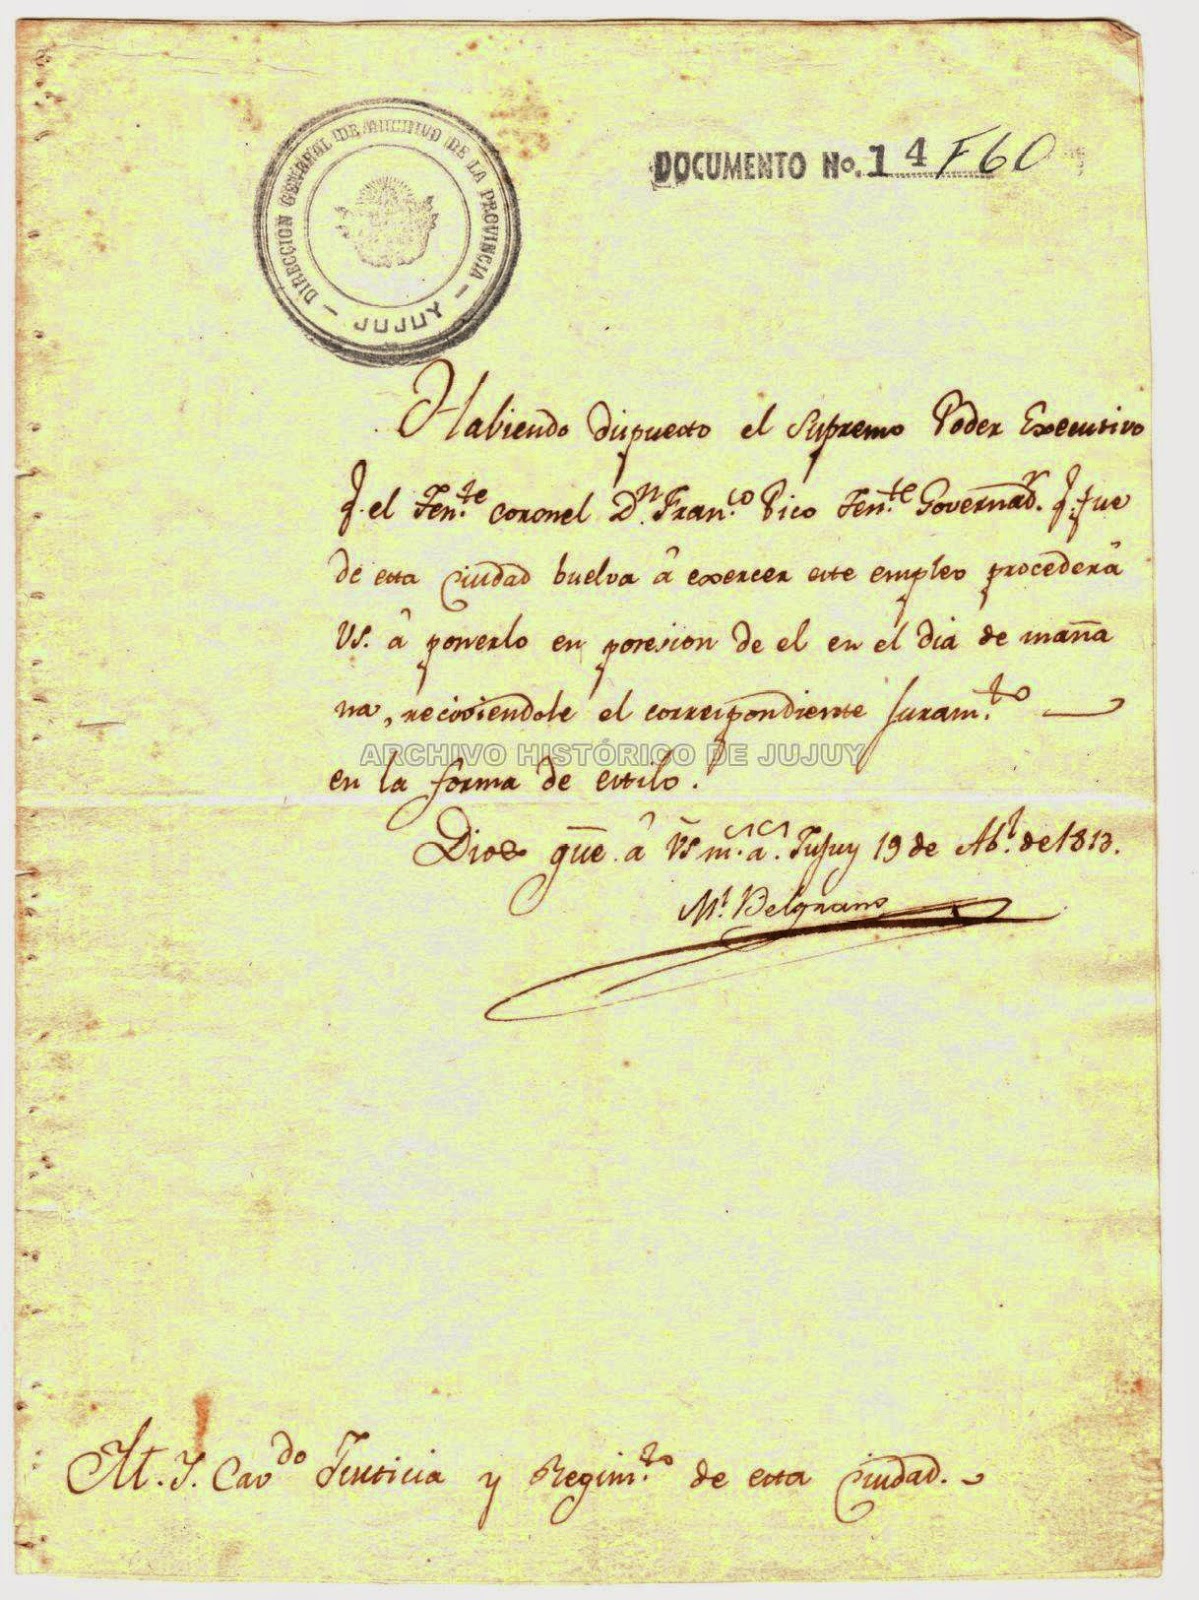 DIRECCION GENERAL DE ARCHIVO DE LA PROVINCIA
— JUJUY —
DOCUMENTO No. 14 F60
Habiendo dispuesto el Supremo Poder Executivo
q. el Ten.te coronel D.n Fran.co Pico Ten.te Governad.r q. fue
de esta Ciudad buelva â exercer este empleo procederâ
VS. â ponerlo en posesion de el en el dia de maña
na, reciviendole el correspondiente Juram.to —
en la forma de estilo.
Dios gue. â VS m.s a.s Jujuy 19 de Ab.l de 1813.
M.l Belgrano
ARCHIVO HISTÓRICO DE JUJUY
M. Y. Cav.do Justicia y Regim.to de esta Ciudad.